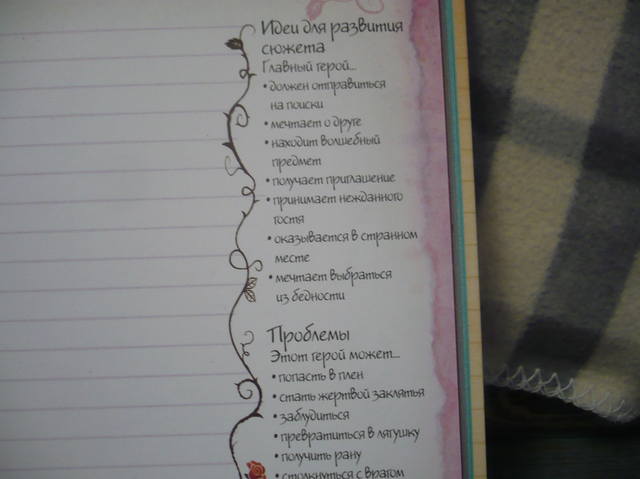 Идеи для развития
сюжета
Главный герой...
• должен отправиться
на поиски
• мечтает о друге
• находит волшебный
предмет
• получает приглашение
• принимает нежданного
гостя
• оказывается в странном
месте
• мечтает выбраться
из бедности
Проблемы
Этот герой может...
• попасть в плен
• стать жертвой заклятья
• заблудиться
• превратиться в лягушку
• получить рану
• столкнуться с врагом